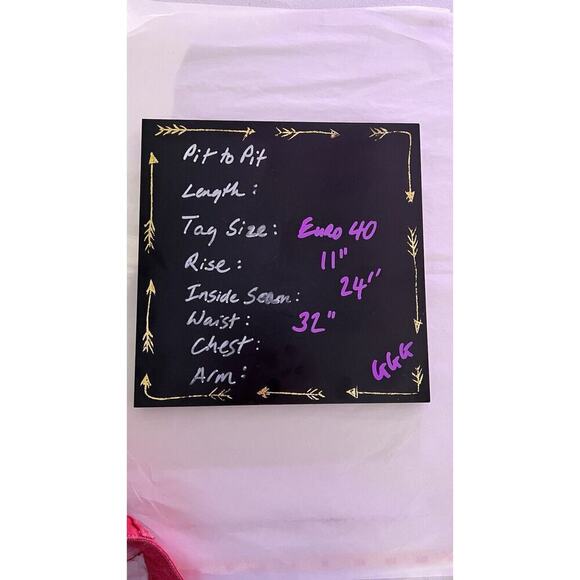 Pit to Pit
Length:
Tag Size: Euro 40
Rise: 11"
Inside Seam: 24"
Waist: 32"
Chest:
Arm:
GGG